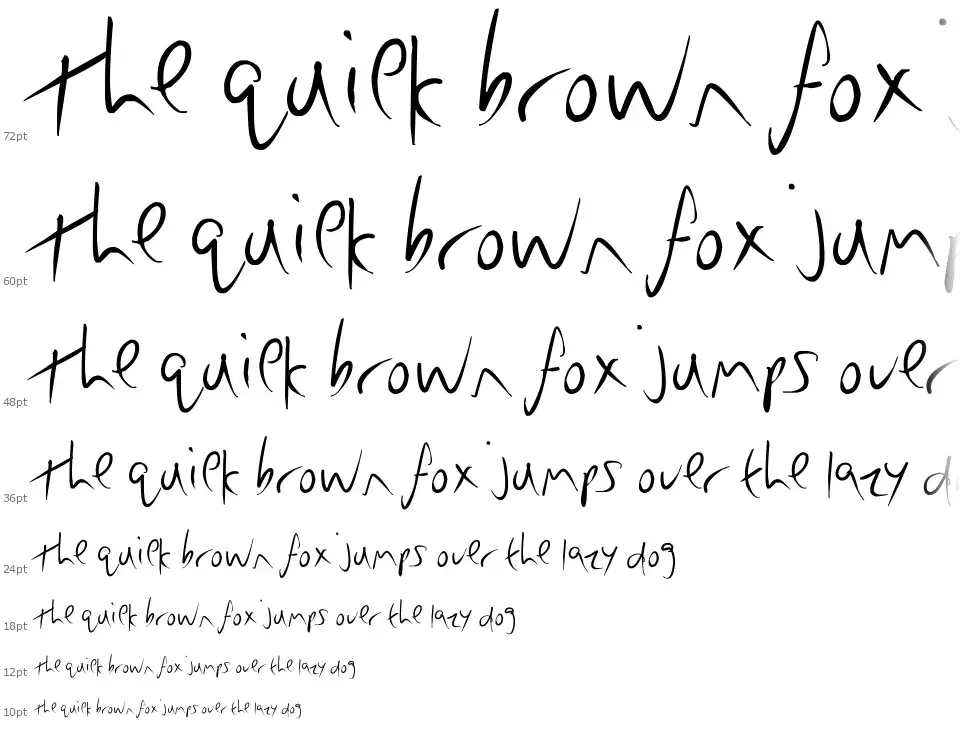 72pt the quick brown fox
60pt the quick brown fox jump
48pt the quick brown fox jumps over
36pt the quick brown fox jumps over the lazy d
24pt the quick brown fox jumps over the lazy dog
18pt the quick brown fox jumps over the lazy dog
12pt the quick brown fox jumps over the lazy dog
10pt the quick brown fox jumps over the lazy dog